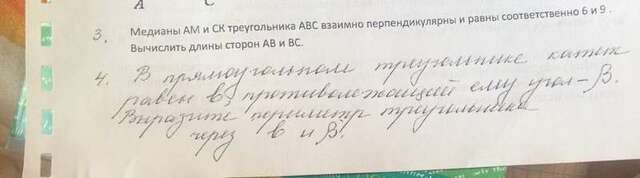 А С
3. Медианы АМ и СК треугольника АВС взаимно перпендикулярны и равны соответственно 6 и 9 .
Вычислить длины сторон АВ и ВС.
4. В прямоугольном треугольнике катет
равен b, противолежащий ему угол – β.
Выразите периметр треугольника
через b и β.